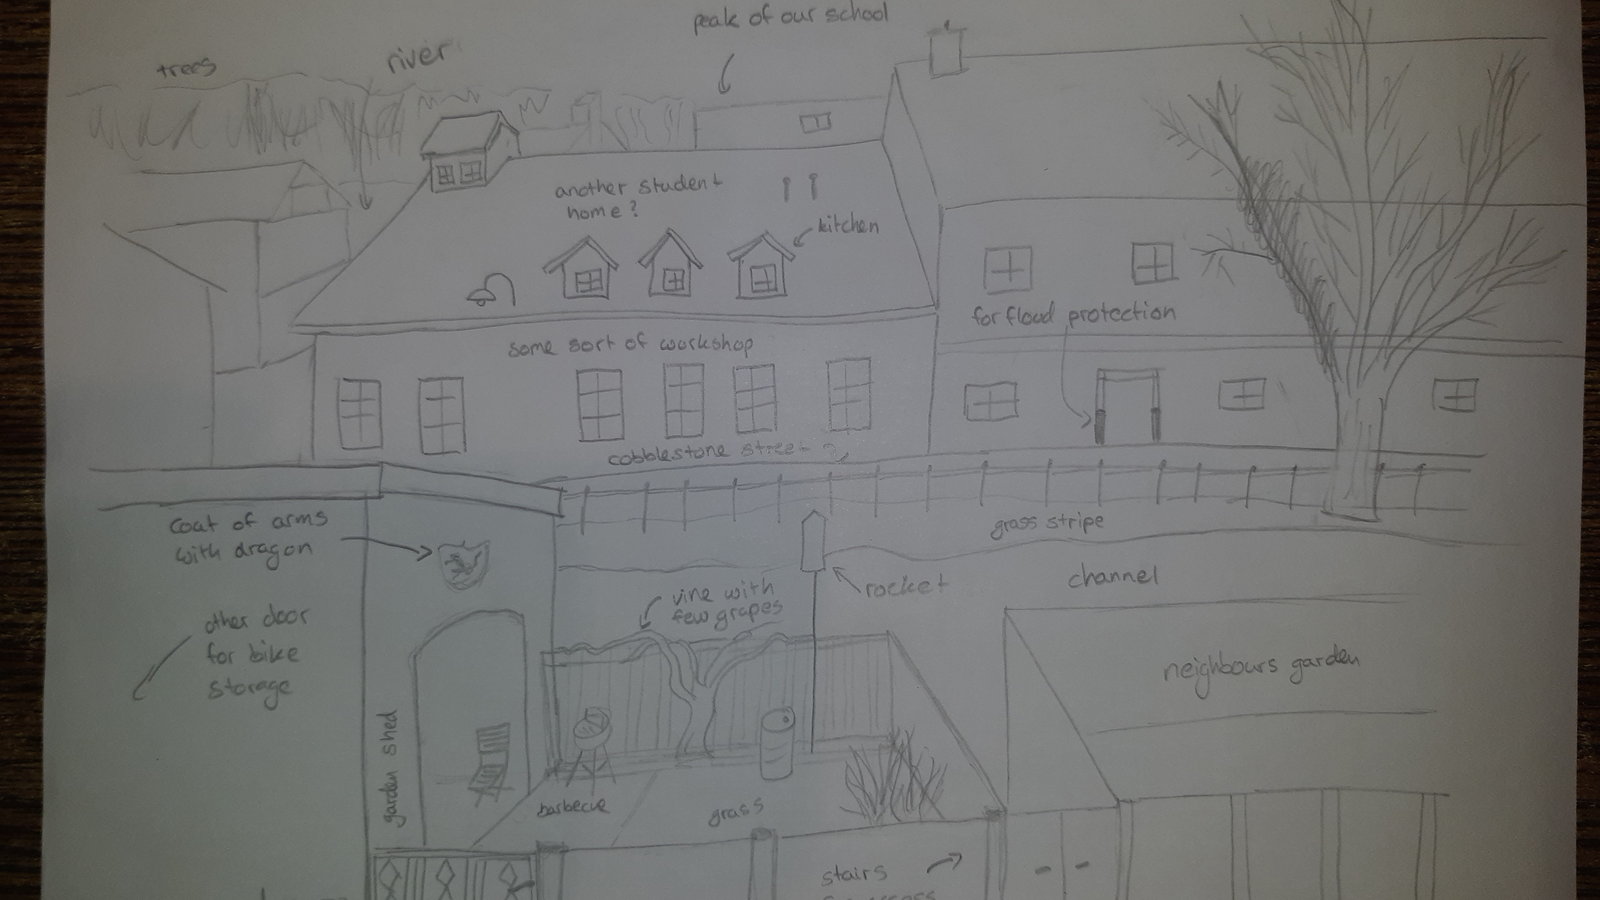 peak of our school
trees
river
another student
home?
kitchen
for flood protection
some sort of workshop
cobblestone street
coat of arms
with dragon
grass stripe
channel
rocket
vine with
few grapes
other door
for bike
storage
neighbours garden
garden shed
barbecue
grass
stairs